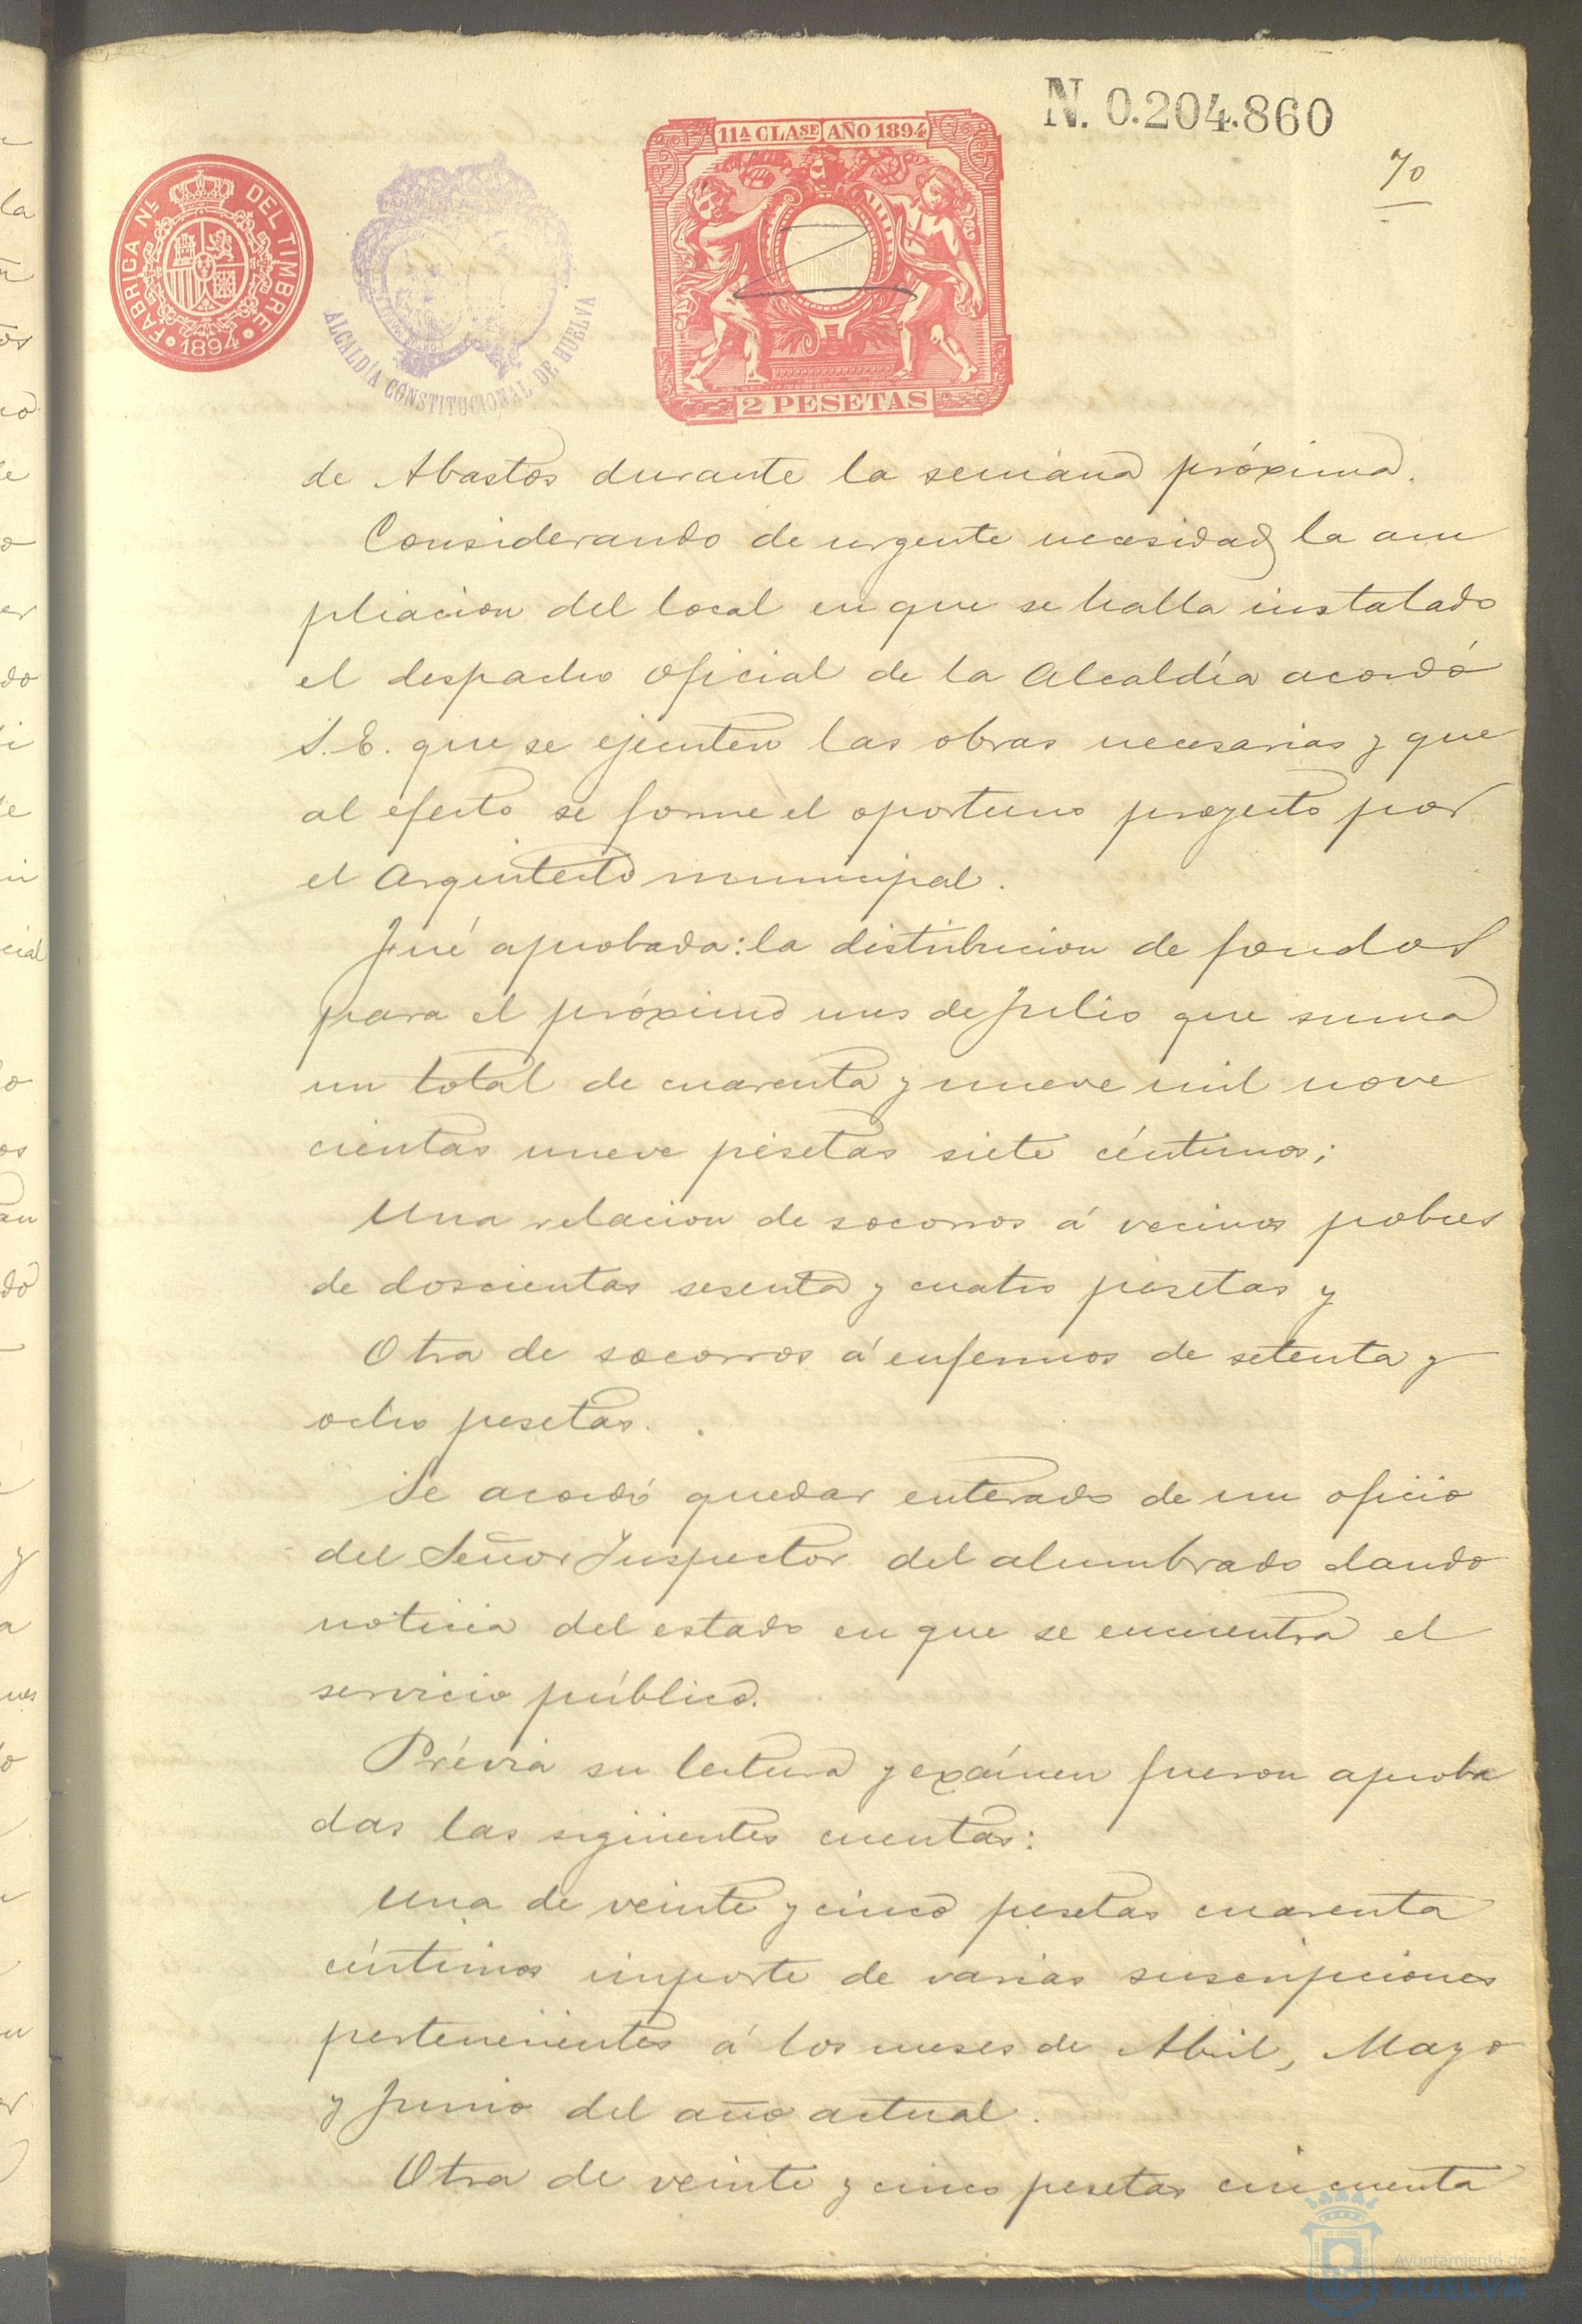 N. 0.204.860
70
11ª CLASE AÑO 1894
FÁBRICA NL. DEL TIMBRE
1894
ALCALDÍA CONSTITUCIONAL DE HUELVA
2 PESETAS
de Abastos durante la semana próxima.
Considerando de urgente necesidad la am
pliacion del local en que se halla instalado
el despacho oficial de la Alcaldía acordó
S.E. que se ejecuten las obras necesarias y que
al efecto se forme el oportuno proyecto por
el Arquitecto municipal.
Fué aprobada: la distribucion de fondos
para el próximo mes de Julio que suma
un total de cuarenta y nueve mil nove
cientas nueve pesetas siete céntimos;
Una relacion de socorros á vecinos pobres
de doscientas sesenta y cuatro pesetas y
Otra de socorros á enfermos de setenta y
ocho pesetas.
Se acordó quedar enterado de un oficio
del Señor Inspector del alumbrado dando
noticia del estado en que se encuentra el
servicio público.
Prévia su lectura y exámen fueron aproba
das las sigüientes cuentas:
Una de veinte y cinco pesetas cuarenta
céntimos importe de varias suscripciones
pertenecientes á los meses de Abril, Mayo
y Junio del año actual.
Otra de veinte y cinco pesetas cincuenta
Ayuntamiento de
HUELVA